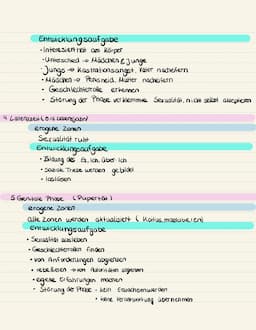 Entwicklungsaufgabe
• Interessiert an Körper
• Unterschied → Mädchen & Junge
• Jungs → Kastrationsangst, Vater nacheifern
• Mädchen → Penisneid, Mutter nacheifern
• Geschlechterrolle erkennen
• Störung der Phase verklemmte Sexualität, nicht selbst akzeptieren
4 Latenzzeit
erogene Zonen
Sexualität ruht
Entwicklungsaufgabe
• Bildung des Es, Ich, Über Ich
• soziale Triebe werden gebildet
• loslösen
5 Genitale Phase (Pupertät)
erogene Zonen
alle Zonen werden aktualisiert (Koitus, masturbieren)
Entwicklungsaufgabe
• Sexualität ausleben
• Geschlechterrollen finden
• von Anforderungen abgrenzen
• rebellieren → von Autoritäten abgrenzen
• eigene Erfahrungen machen
• Störung der Phase - kein Erwachsenwerden
• keine Verantwortung übernehmen